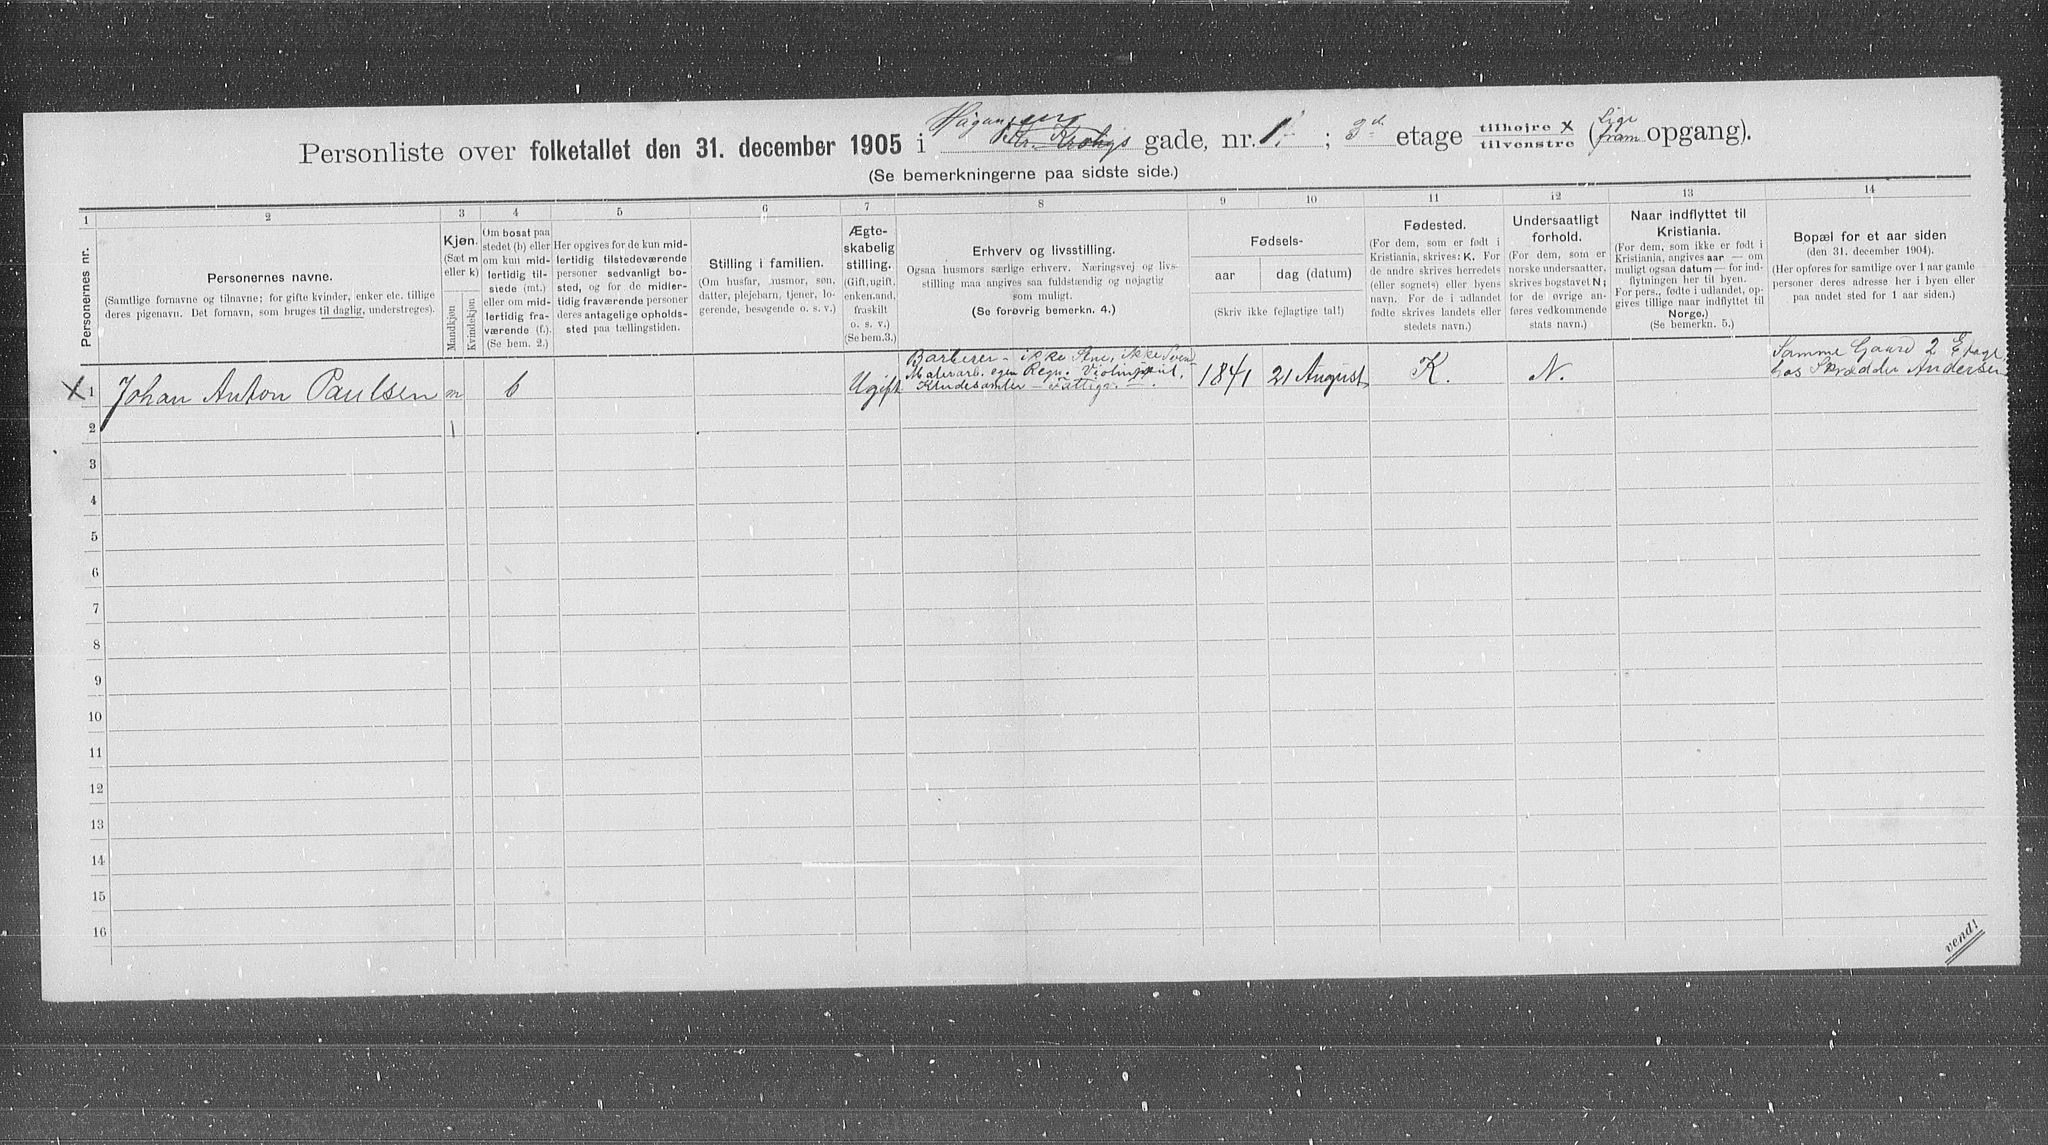 Personliste over folketallet den 31. december 1905 i gade, nr. 1; 3d etage tilhøjre X tilvenstre (Lige fram opgang).
(Se bemerkningerne paa sidste side.)
1 2 3 4 5 6 7 8 9 10 11 12 13 14
Personernes nr.
Personernes navne.
(Samtlige fornavne og tilnavne; for gifte kvinder, enker etc. tillige
deres pigenavn. Det fornavn, som bruges til daglig, understreges).
Kjøn.
(Sæt m
eller k)
Mandkjøn
Kvindekjøn
Om bosat paa
stedet (b) eller
om kun mid-
lertidig til-
stede (mt.)
eller om mid-
lertidig fra-
værende (f.).
(Se bem. 2.)
Her opgives for de kun mid-
lertidig tilstedeværende
personer sedvanlig bo-
sted, og for de midler-
tidig fraværende personer
deres antagelige opholds-
sted paa tællingstiden.
Stilling i familien.
(Om husfar, husmor, søn,
datter, plejebarn, tjener, lo-
gerende, besøgende o. s. v.)
Ægte-
skabelig
stilling.
(Gift, ugift,
enkem.and,
fraskilt
o. s. v.)
(Se bem.3.)
Erhverv og livsstilling.
Ogsaa husmors særlige erhverv. Næringsvej og livs-
stilling maa angives saa fuldstændig og nøjagtig
som muligt.
(Se forøvrig bemerkn. 4.)
Fødsels-
aar
dag (datum)
(Skriv ikke fejlagtige tal!)
Fødested.
(For dem, som er født i
Kristiania, skrives: K. For
de andre skrives herredets
(eller sognets) eller byens
navn. For de i udlandet
fødte skrives landets eller
stedets navn.)
Undersaatligt
forhold.
(For dem, som er
norske undersaatter,
skrives bogstavet N;
for de øvrige an-
føres vedkommende
stats navn.)
Naar indflyttet til
Kristiania.
(For dem, som ikke er født i
Kristiania, angives aar — om
muligt ogsaa datum — for ind-
flytningen her til byen.
For pers., fødte i udlandet, op-
gives tillige naar indflyttet til
Norge.)
(Se bemerkn. 5.)
Bopæl for et aar siden
(den 31. december 1904).
(Her opføres for samtlige over 1 aar gamle
personer deres adresse her i byen eller
paa andet sted for 1 aar siden.)
X 1 Johan Anton Paulsen m b Ugift
Barberer – ikke ikke Svend
Malerarb. egen Regn.
Kludesamler –
1841 21 August K. N.
Samme Gaard 2 Etage
hos Skrædder Andersen
2 1
3
4
5
6
7
8
9
10
11
12
13
14
15
16
vend!